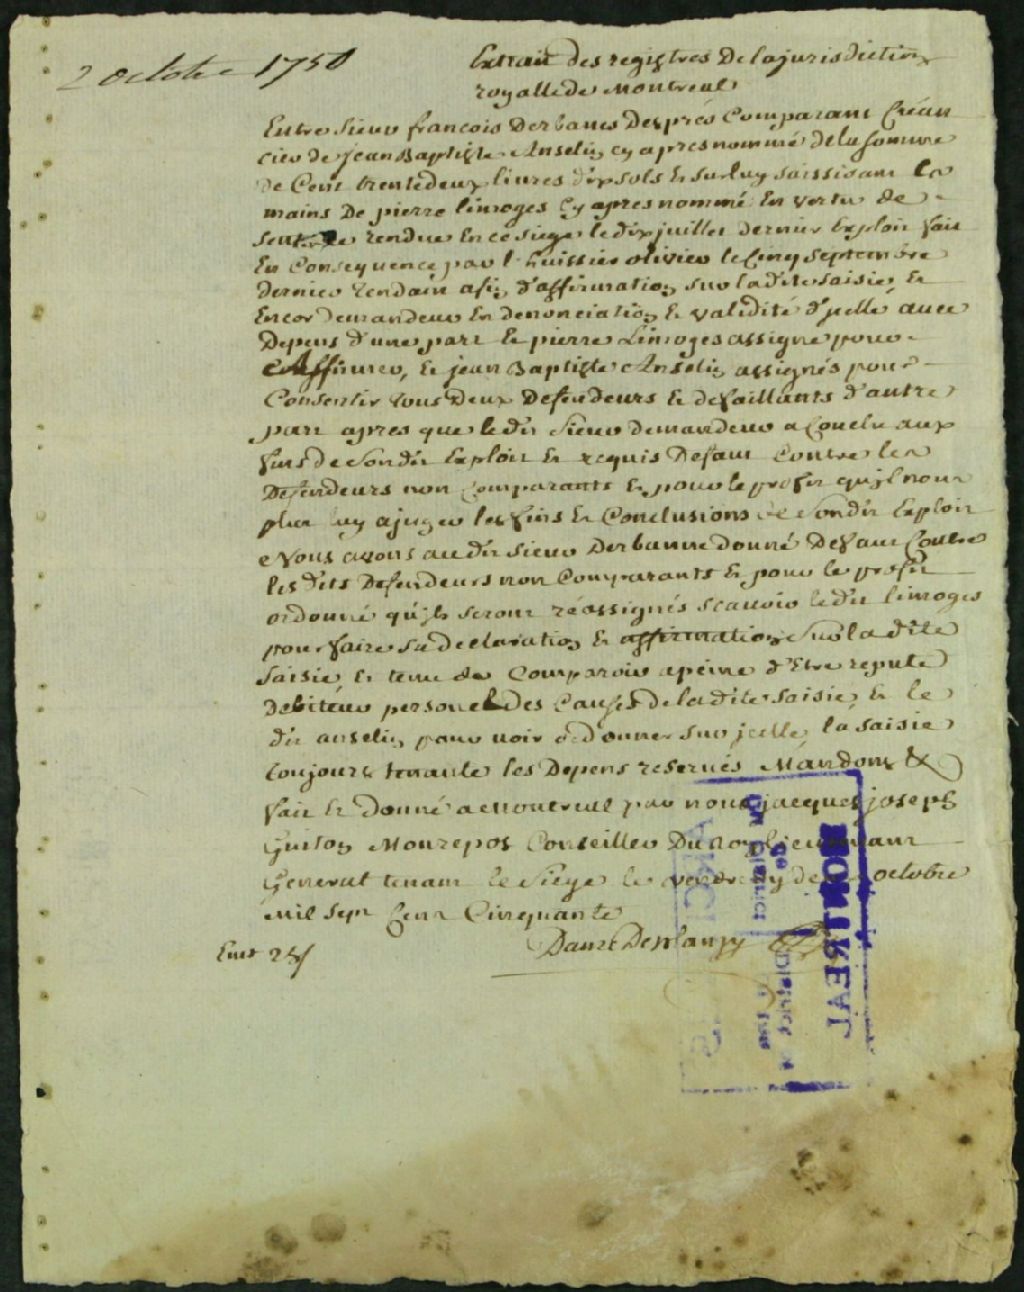 2 octobre 1750
Extrait des registres De la jurisdiction
royalle de Montreal
Entre Sieur françois Derbanes Després Comparant Créan
cier de Jean Baptiste Anselin cy apres nommé de la somme
de Cent trente deux livres dix sols Et sur luy saisissant Es
mains De pierre limoges Cy apres nommé En vertu de
rendue En ce siege le dix juillet dernier Exploit fait
En Consequence par l'huissier olivier le Cinq Septembre
dernier tendant afin d'affirmation sur la dite saisie, Et
Encor demandeur En denonciation Et validité d'jcelle avec
Depens d'une part Et pierre Limoges assigné pour
affirmer, Et jean Baptiste Anselin assignés pour
Consentir tous Deux Defendeurs Et defaillants d'autre
part apres que le dit Sieur demandeur a Conclu aux
fins de Son dit Exploit Et requis Defaut Contre les
Defendeurs non Comparants Et pour le profit qu'jl nous
plut luy ajuger les fins Et Conclusions de Son dit Exploit
Nous avons au dit Sieur Derbanne donné Defaut Contre
les dits Defendeurs non Comparants Et pour le profit
ordonné qu'jls seront réassignés scauoir le dit limoges
pour faire sa declaration Et affirmation Sur la dite
Saisie, Et tenu de Comparoir apeine d'Etre reputé
Debiteur personel des Causes de la dite saisie, Et le
dit anselin pour uoir ordonner sur jcelle, la saisie
toujours tenante les Depens reservés Mandons &
fait Et Donné a Montreal par nous jacques joseph
Guiton Monrepos Conseiller Du Roy Lieutenant
General tenant le Siege le vendredy deux octobre
Mil Sept Cent Cinquante
Danré DeBlanzy
MONTREAL
District